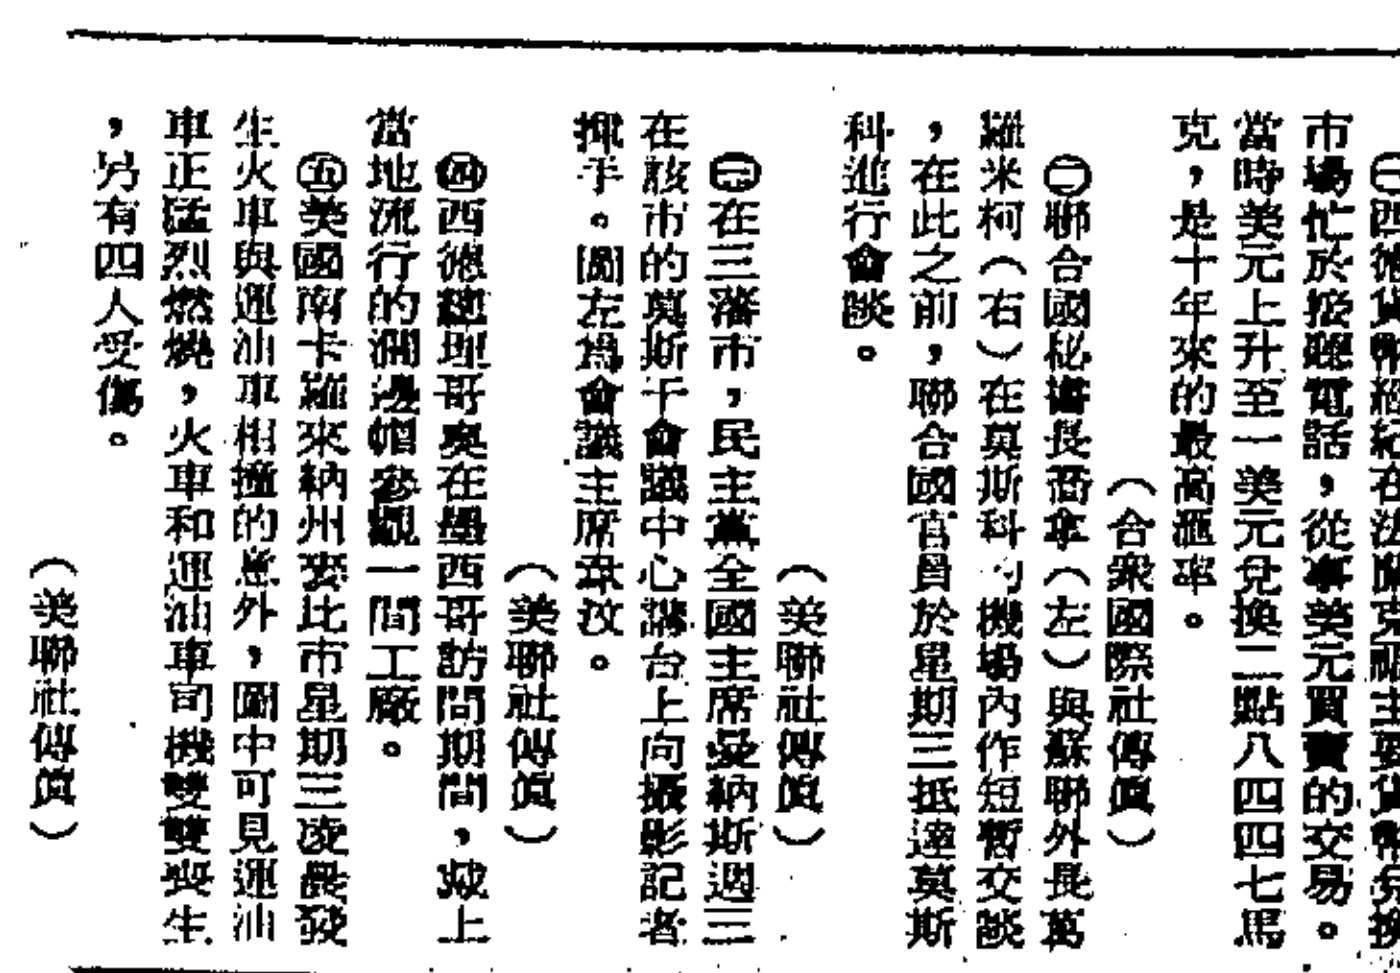 ㊀西德貨幣經紀在法蘭克福主要貨幣兌換
市場忙於接聽電話，從事美元買賣的交易。
當時美元上升至一美元兌換二點八四四七馬
克，是十年來的最高滙率。
（合衆國際社傳眞）
㊁聯合國秘書長喬拿（左）與蘇聯外長葛
羅米柯（右）在莫斯科的機場內作短暫交談
，在此之前，聯合國官員於星期三抵達莫斯
科進行會談。
（美聯社傳眞）
㊂在三藩市，民主黨全國主席曼納斯週三
在該市的莫斯干會議中心講台上向攝影記者
揮手。圖左爲會議主席韋汶。
（美聯社傳眞）
㊃西德總理哥奥在墨西哥訪問期間，戴上
當地流行的濶邊帽參觀一間工廠。
㊄美國南卡羅來納州麥比市星期三凌晨發
生火車與運油車相撞的意外，圖中可見運油
車正猛烈燃燒，火車和運油車司機雙雙喪生
，另有四人受傷。
（美聯社傳眞）